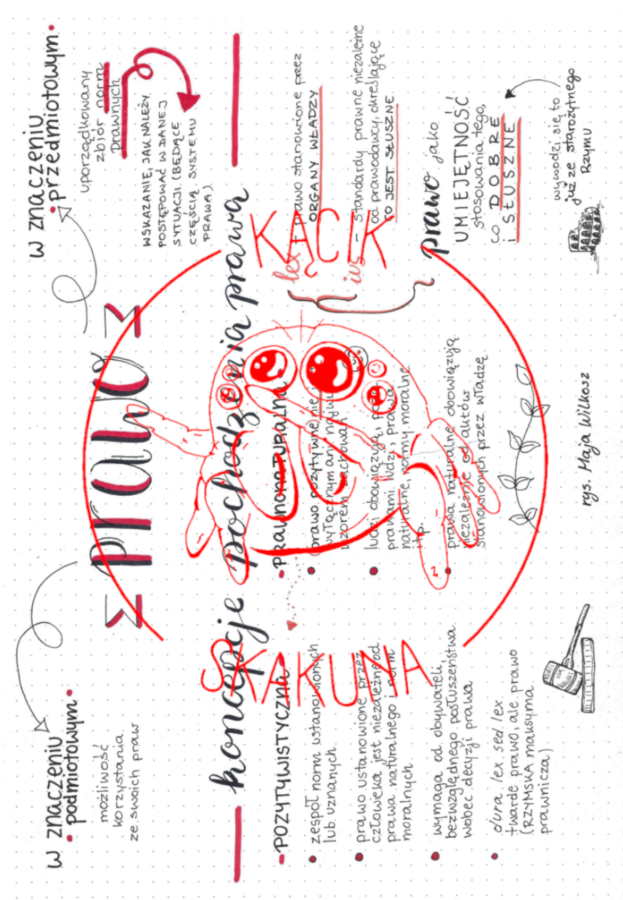 prawo
w znaczeniu
• podmiotowym •
możliwość
korzystania
ze swoich praw
w znaczeniu
• przedmiotowym •
uporządkowany
zbiór norm
prawnych
WSKAZANIE, JAK NALEŻY
POSTĘPOWAĆ W DANEJ
SYTUACJI (BĘDĄCE
CZĘŚCIĄ SYSTEMU
PRAWA)
koncepcje pochodzenia prawa
- POZYTYWISTYCZNA -
• zespół norm ustanowionych
lub uznanych
• prawo ustanowione przez
człowieka jest niezależne od
prawa naturalnego i norm
moralnych
• wymaga od obywateli,
bezwzględnego posłuszeństwa
wobec decyzji prawa
• dura lex sed lex
twarde prawo, ale prawo
(RZYMSKA maksyma
prawnicza)
• PRAWNONATURALNA
• prawo pozytywne nie
wyłącznym ani
wzorem zachowań
• ludzi obowiązują
prawami ludzi, prawa
naturalne, normy moralne
itp.
• prawa naturalne obowiązują
niezależnie od aktów
stanowionych przez władzę
lex - prawo stanowione przez
ORGANY WŁADZY
ius - standardy prawne niezależne
od prawodawcy, określające
CO JEST SŁUSZNE
prawo jako
UMIEJĘTNOŚĆ
stosowania tego,
co DOBRE
i SŁUSZNE
wywodzi się to
już ze starożytnego
Rzymu
rys. Maja Wilkosz
KĄCIK
SKAKUNA